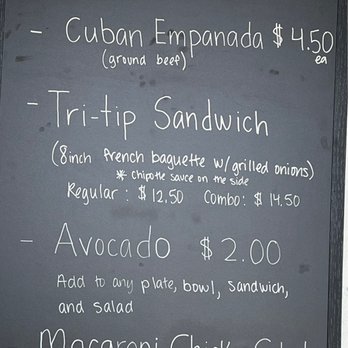 - Cuban Empanada $4.50
(ground beef) ea
- Tri-tip Sandwich
(8inch french baguette w/grilled onions)
* Chipotle sauce on the side
Regular: $12.50 Combo: $14.50
- Avocado $2.00
Add to any plate, bowl, sandwich,
and salad
Macaroni